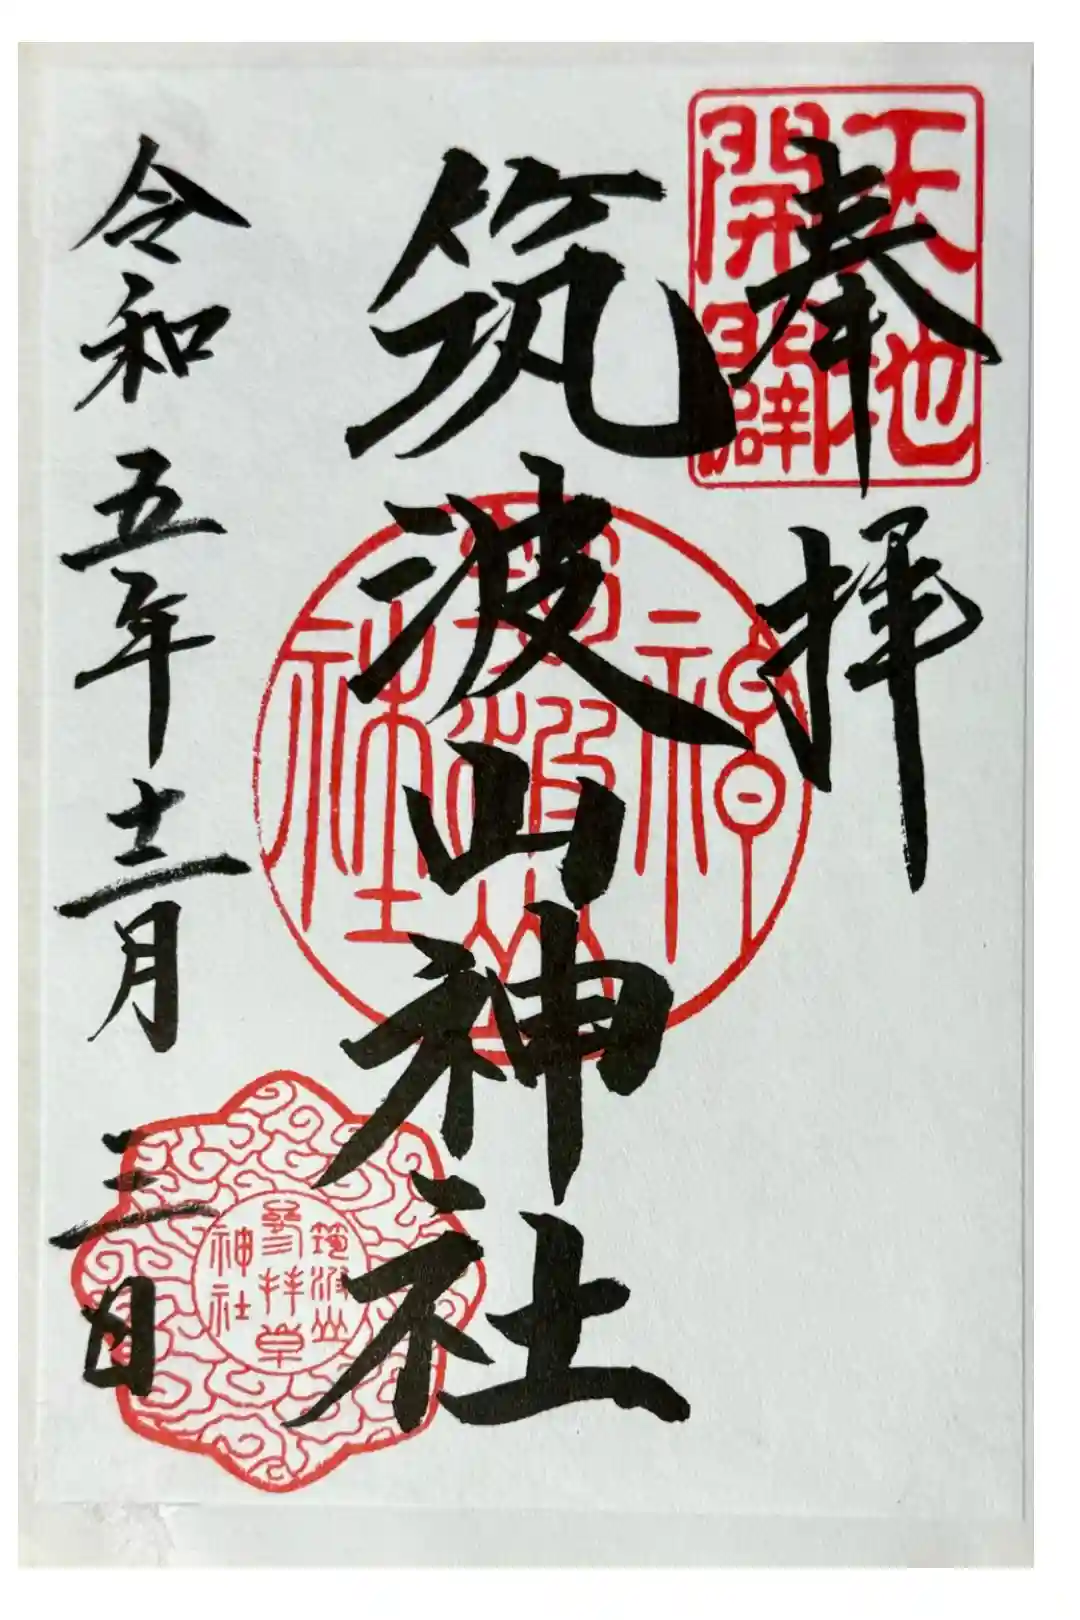 奉拝
天地
開闢
筑波山神社
神
筑波山
社
令和五年十二月三日
筑波山
参拝章
神社